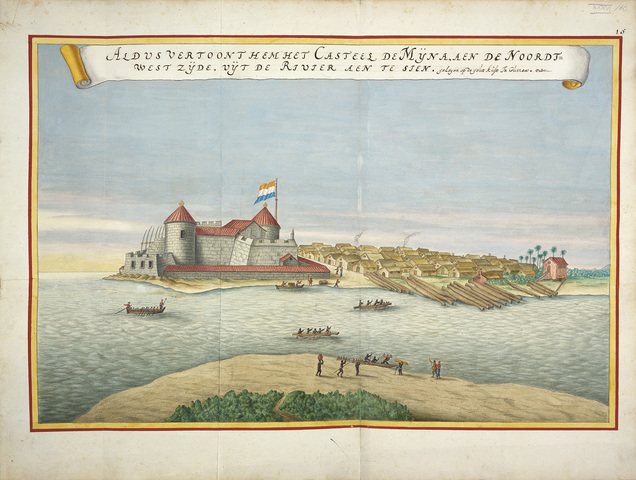 18
ALDUS VERTOONT HEM HET CASTEEL DE MŸNA, AEN DE NOORDT=
WEST ZŸDE, VŸT DE RIVIER AEN TE SIEN. gelegen op de